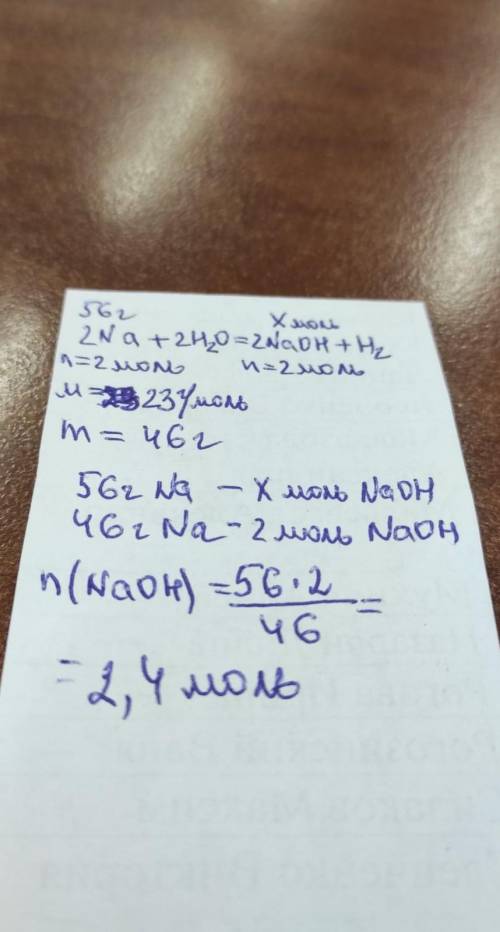 56г
X моль
2Na + 2H₂O = 2NaOH + H₂
n=2моль n=2моль
M= 23г/моль
m = 46г
56г Na – X моль NaOH
46г Na – 2 моль NaOH
n(NaOH) = 56·2 / 46 =
= 2,4 моль